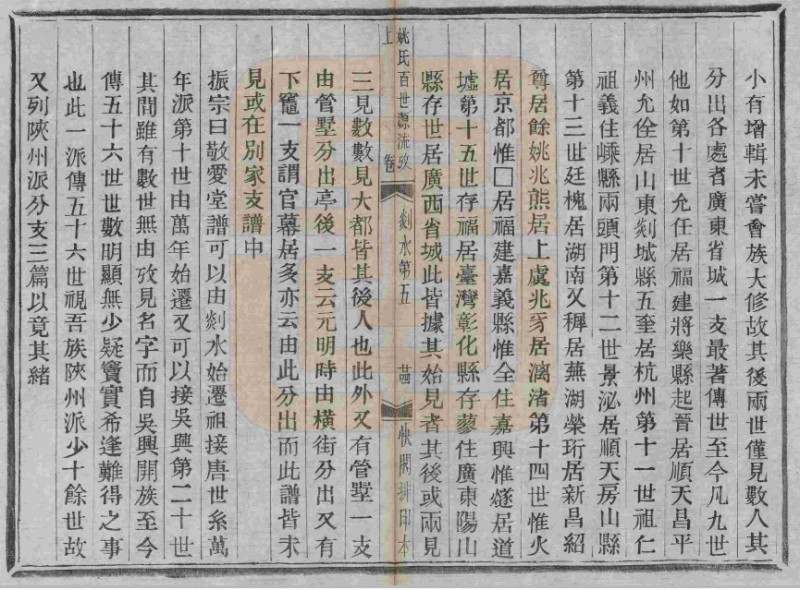 小有增輯未嘗會族大修故其後兩世僅見數人其
分出各處者廣東省城一支最著傳世至今凡九世
他如第十世允任居福建將樂縣起晉居順天昌平
州允佺居山東剡城縣五奎居杭州第十一世祖仁
祖義住嵊縣兩頭門第十二世景泌居順天房山縣
第十三世廷槐居湖南又稺居蕪湖榮珩居新昌紹
尊居餘姚兆熊居上虞兆牙居漓渚第十四世惟火
居京都惟□居福建嘉義縣惟全住嘉興惟燧居道
墟第十五世存福居臺灣彰化縣存蒙住廣東陽山
縣存世居廣西省城此皆據其始見者其後或兩見
姚氏百世源流攷 卷上 剡水第五 廿四 快閣排印本
三見數數見大都皆其後人也此外又有管墅一支
由管墅分出亭後一支云元明時由橫街分出又有
下竈一支謂官幕居多亦云由此分出而此譜皆未
見或在別家支譜中
振宗曰敬愛堂譜可以由剡水始遷祖接唐世系萬
年派第十世由萬年始遷又可以接吳興第二十世
其間雖有數世無由攷見名字而自吳興開族至今
傳五十六世世數明顯無少疑竇實希逢難得之事
也此一派傳五十六世視吾族陝州派少十餘世故
又列陝州派分支三篇以竟其緒